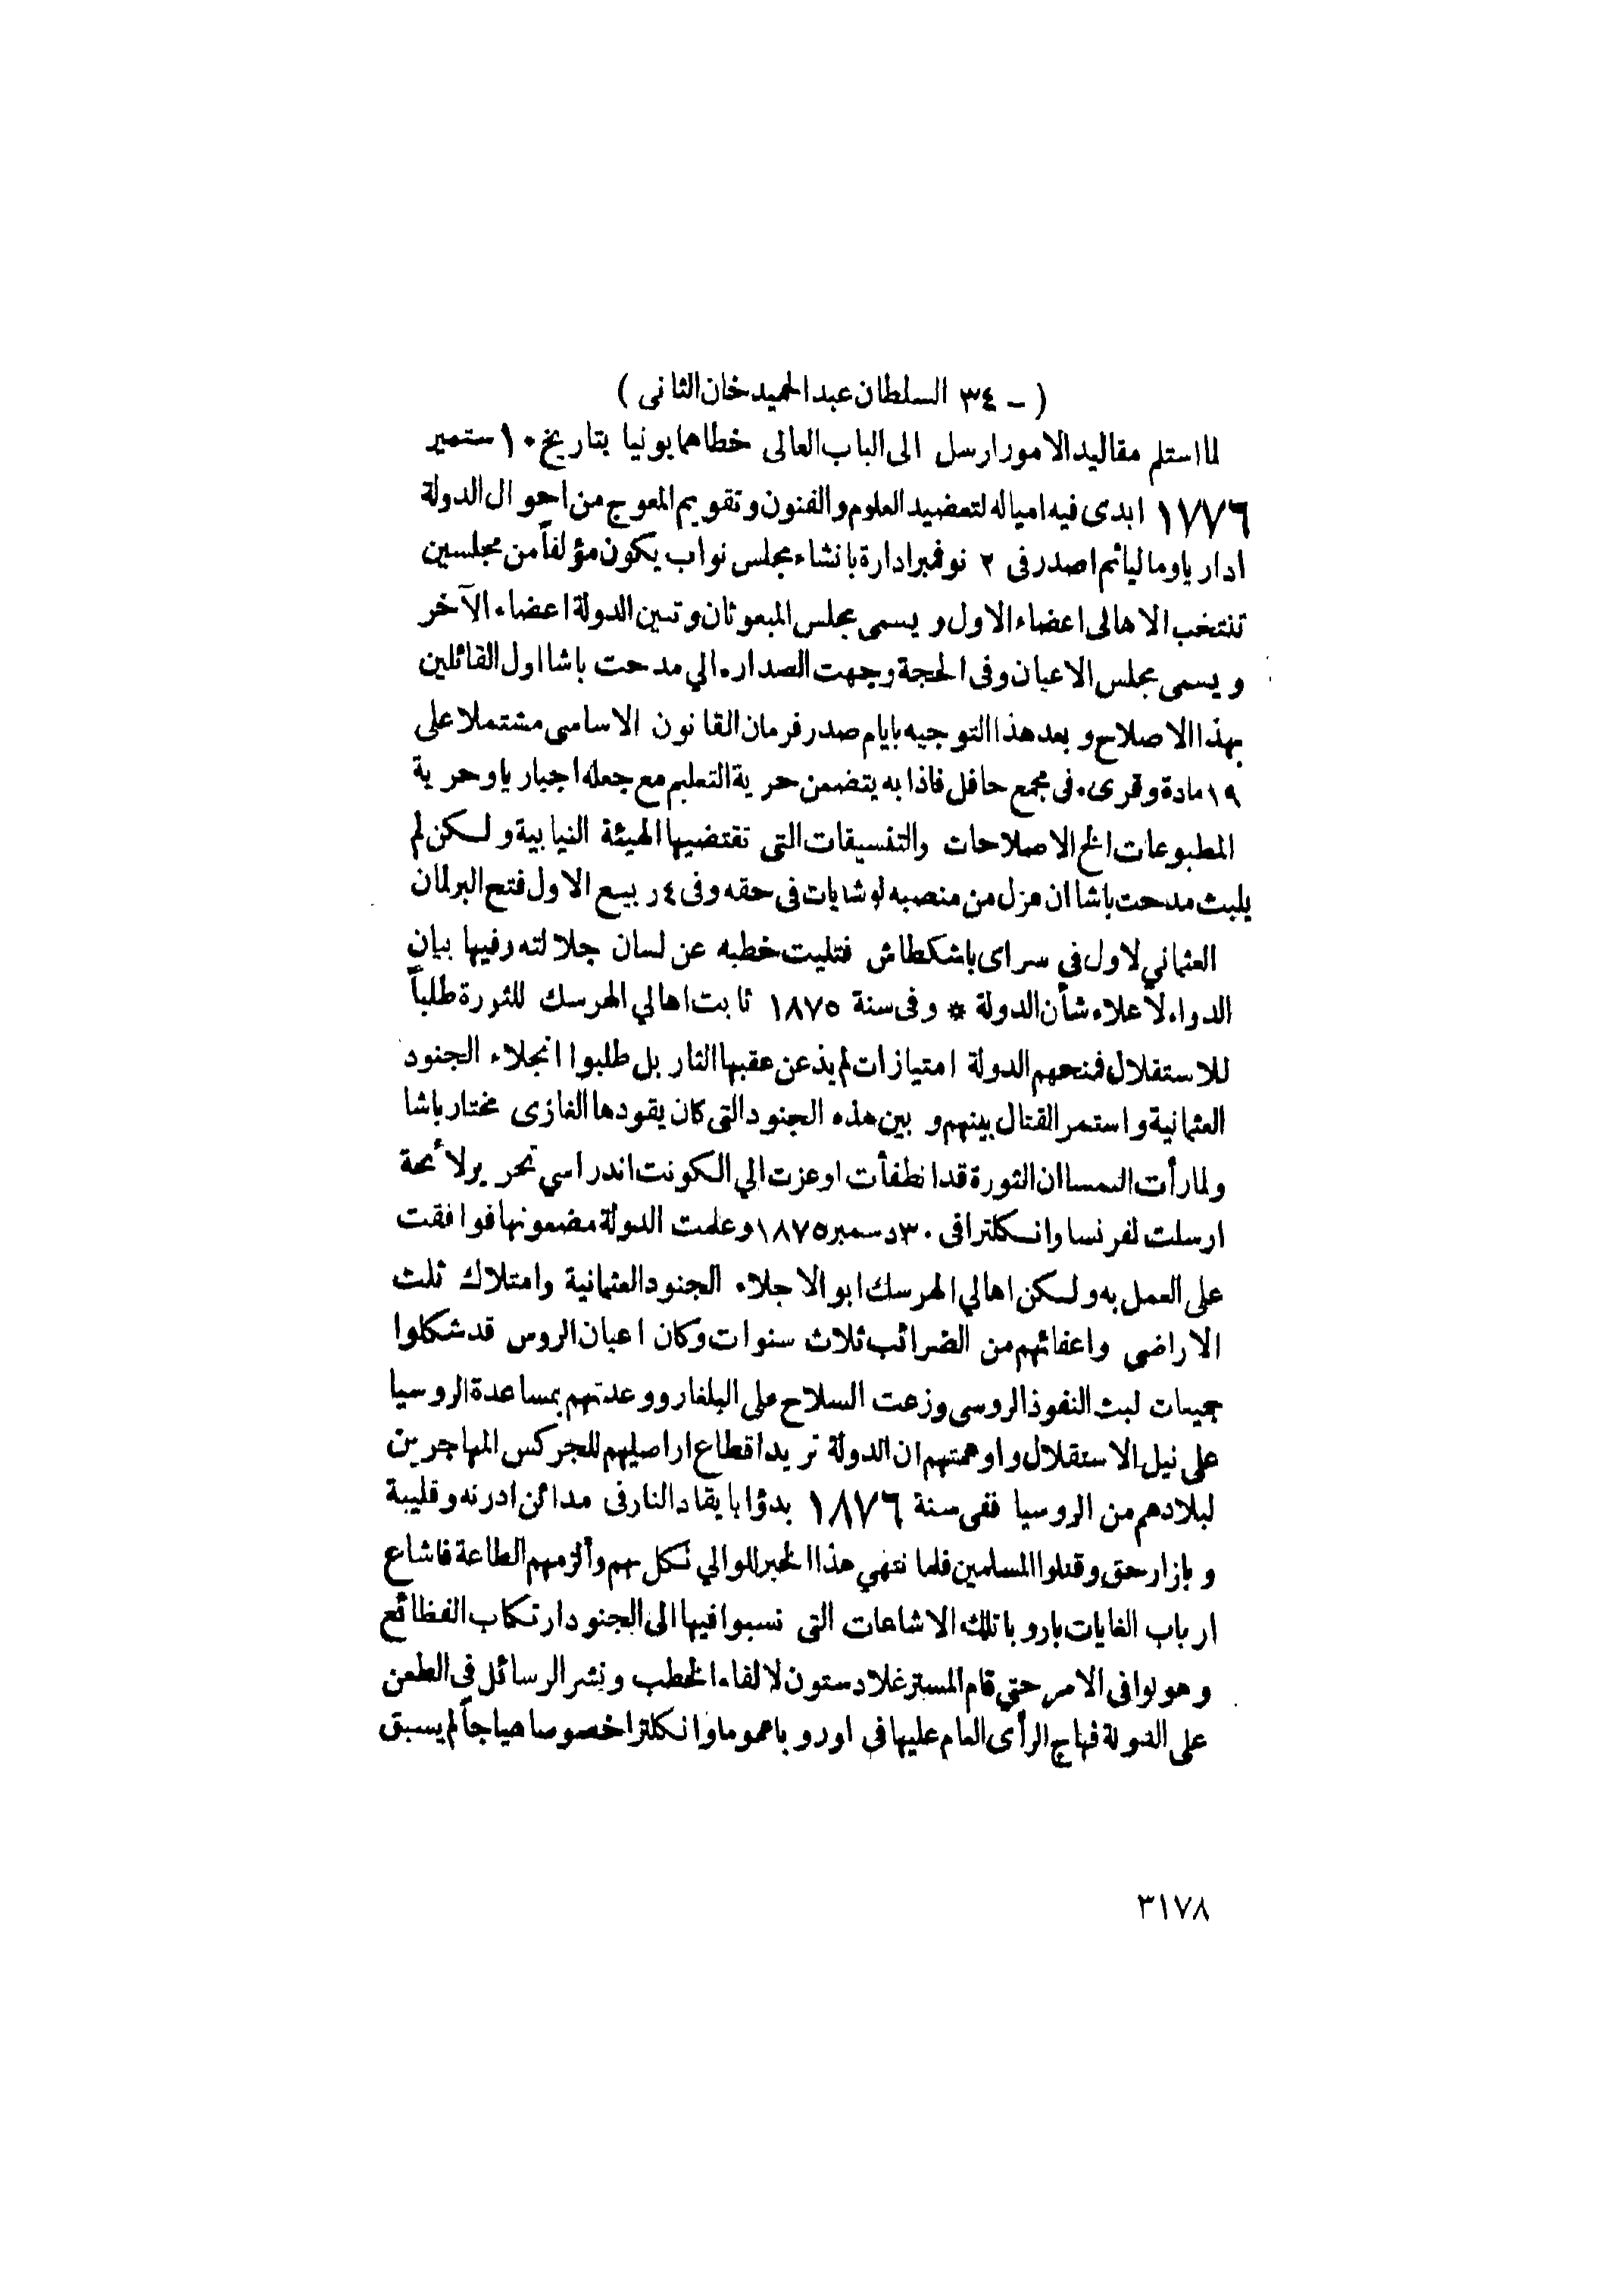 ( ـ ٣٤ السلطان عبد الحميد خان الثانى )
لما استلم مقاليد الامور ارسل الى الباب العالى خطا همايونيا بتاريخ ١٠ ستمبر
١٧٧٦ ابدى فيه امياله لتعضيد العلوم والفنون وتقويم المعوج من احوال الدولة
اداريا وماليا ثم اصدر فى ٢ نوفمبر ادارة بانشاء مجلس نواب يكون مؤلفاً من مجلسين
تنتخب الاهالى اعضاء الاول ويسمى مجلس المبعوثان وتسين الدولة اعضاء الآخر
ويسمى مجلس الاعيان وفى الحجة وجهت الصداره الي مدحت باشا اول القائلين
بهذا الاصلاح وبعد هذا التوجيه بايام صدر فرمان القانون الاساسى مشتملا على
١٩ مادة وقرىء فى مجمع حافل فاذا به يتضمن حرية التعليم مع جعله اجباريا وحرية
المطبوعات الخ الاصلاحات والتفسيقات التى تقتضيها الهيئة النيابية ولكن لم
يلبث مدحت باشا ان عزل من منصبه لوشايات فى حقه وفى ٤ ربيع الاول فتح البرلمان
العثماني لاول في سراى باشكطاش فتليت خطبه عن لسان جلالته وفيها بيان
الدواء لاعلاء شأن الدولة * وفى سنة ١٨٧٥ ثابت اهالي الهرسك للثورة طلباً
للاستقلال فمنحهم الدولة امتيازات لم يذعن عقبها الثار بل طلبوا انجلاء الجنود
العثمانية واستمر القتال بينهم وبين هذه الجنود التى كان يقودها الغازى مختار باشا
ولما رأت النمسا ان الثورة قد انطفأت اوعزت الي الكونت اندراسي تحرير لائحة
ارسلت لفرنسا وانكلترا فى ٣٠ دسمبر ١٨٧٥ وعلمت الدولة مضمونها فوافقت
على العمل به ولكن اهالي الهرسك ابوا لا جلاء الجنود العثمانية وامتلاك ثلث
الاراضى واعفائهم من الضرائب ثلاث سنوات وكان اعيان الروس قد شكلوا
جمعيات لبث النفوذ الروسى وزعت السلاح على البلغار ووعدتهم بمساعدة الروسيا
على نيل الاستقلال واوهمتهم ان الدولة تريد اقطاع اراصليهم للجركس المهاجرين
لبلادهم من الروسيا ففى سنة ١٨٧٦ بدؤا بايقاد النار فى مدائن ادرنه وقليبة
وبازارحق وقتلوا المسلمين فلما نتهي هذا الخبر للوالي نكل بهم وألزمهم الطاعة فاشاع
ارباب الغايات باروبا تلك الاشاعات التى نسبوا فيها الى الجنود ارتكاب الفظائع
وهولوا فى الامر حتي قام المستر غلادستون لالقاء الخطب ونشر الرسائل في الطعن
على الدولة فهاج الرأى العام عليها فى اوروبا عموما وانكلترا خصوصا هياجاً لم يسبق
٣١٧٨